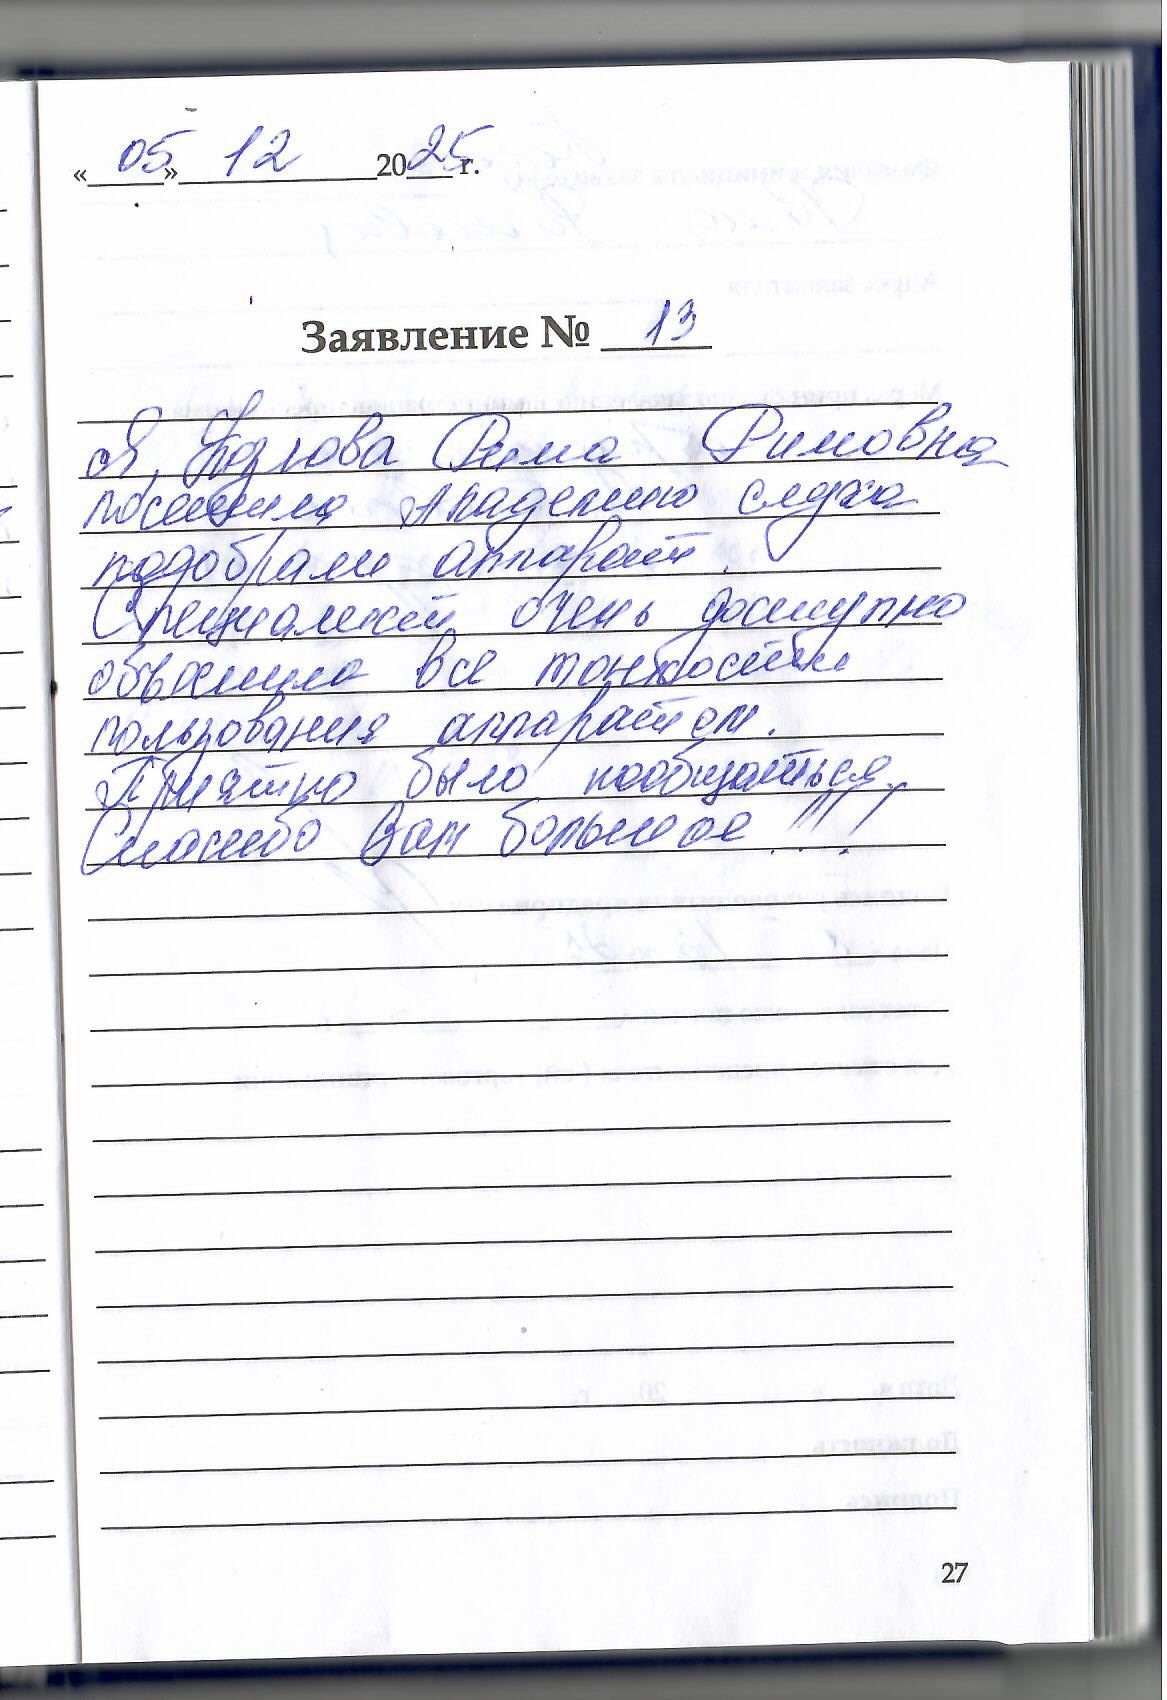 «05» 12 2025 г.
Заявление № 13
Я, Рима Римовна
посетила Академию слуха
подобрали аппарат.
Специалист очень доступно
объяснила все тонкости
пользования аппаратом.
Приятно было пообщаться.
Спасибо Вам большое!!!
27